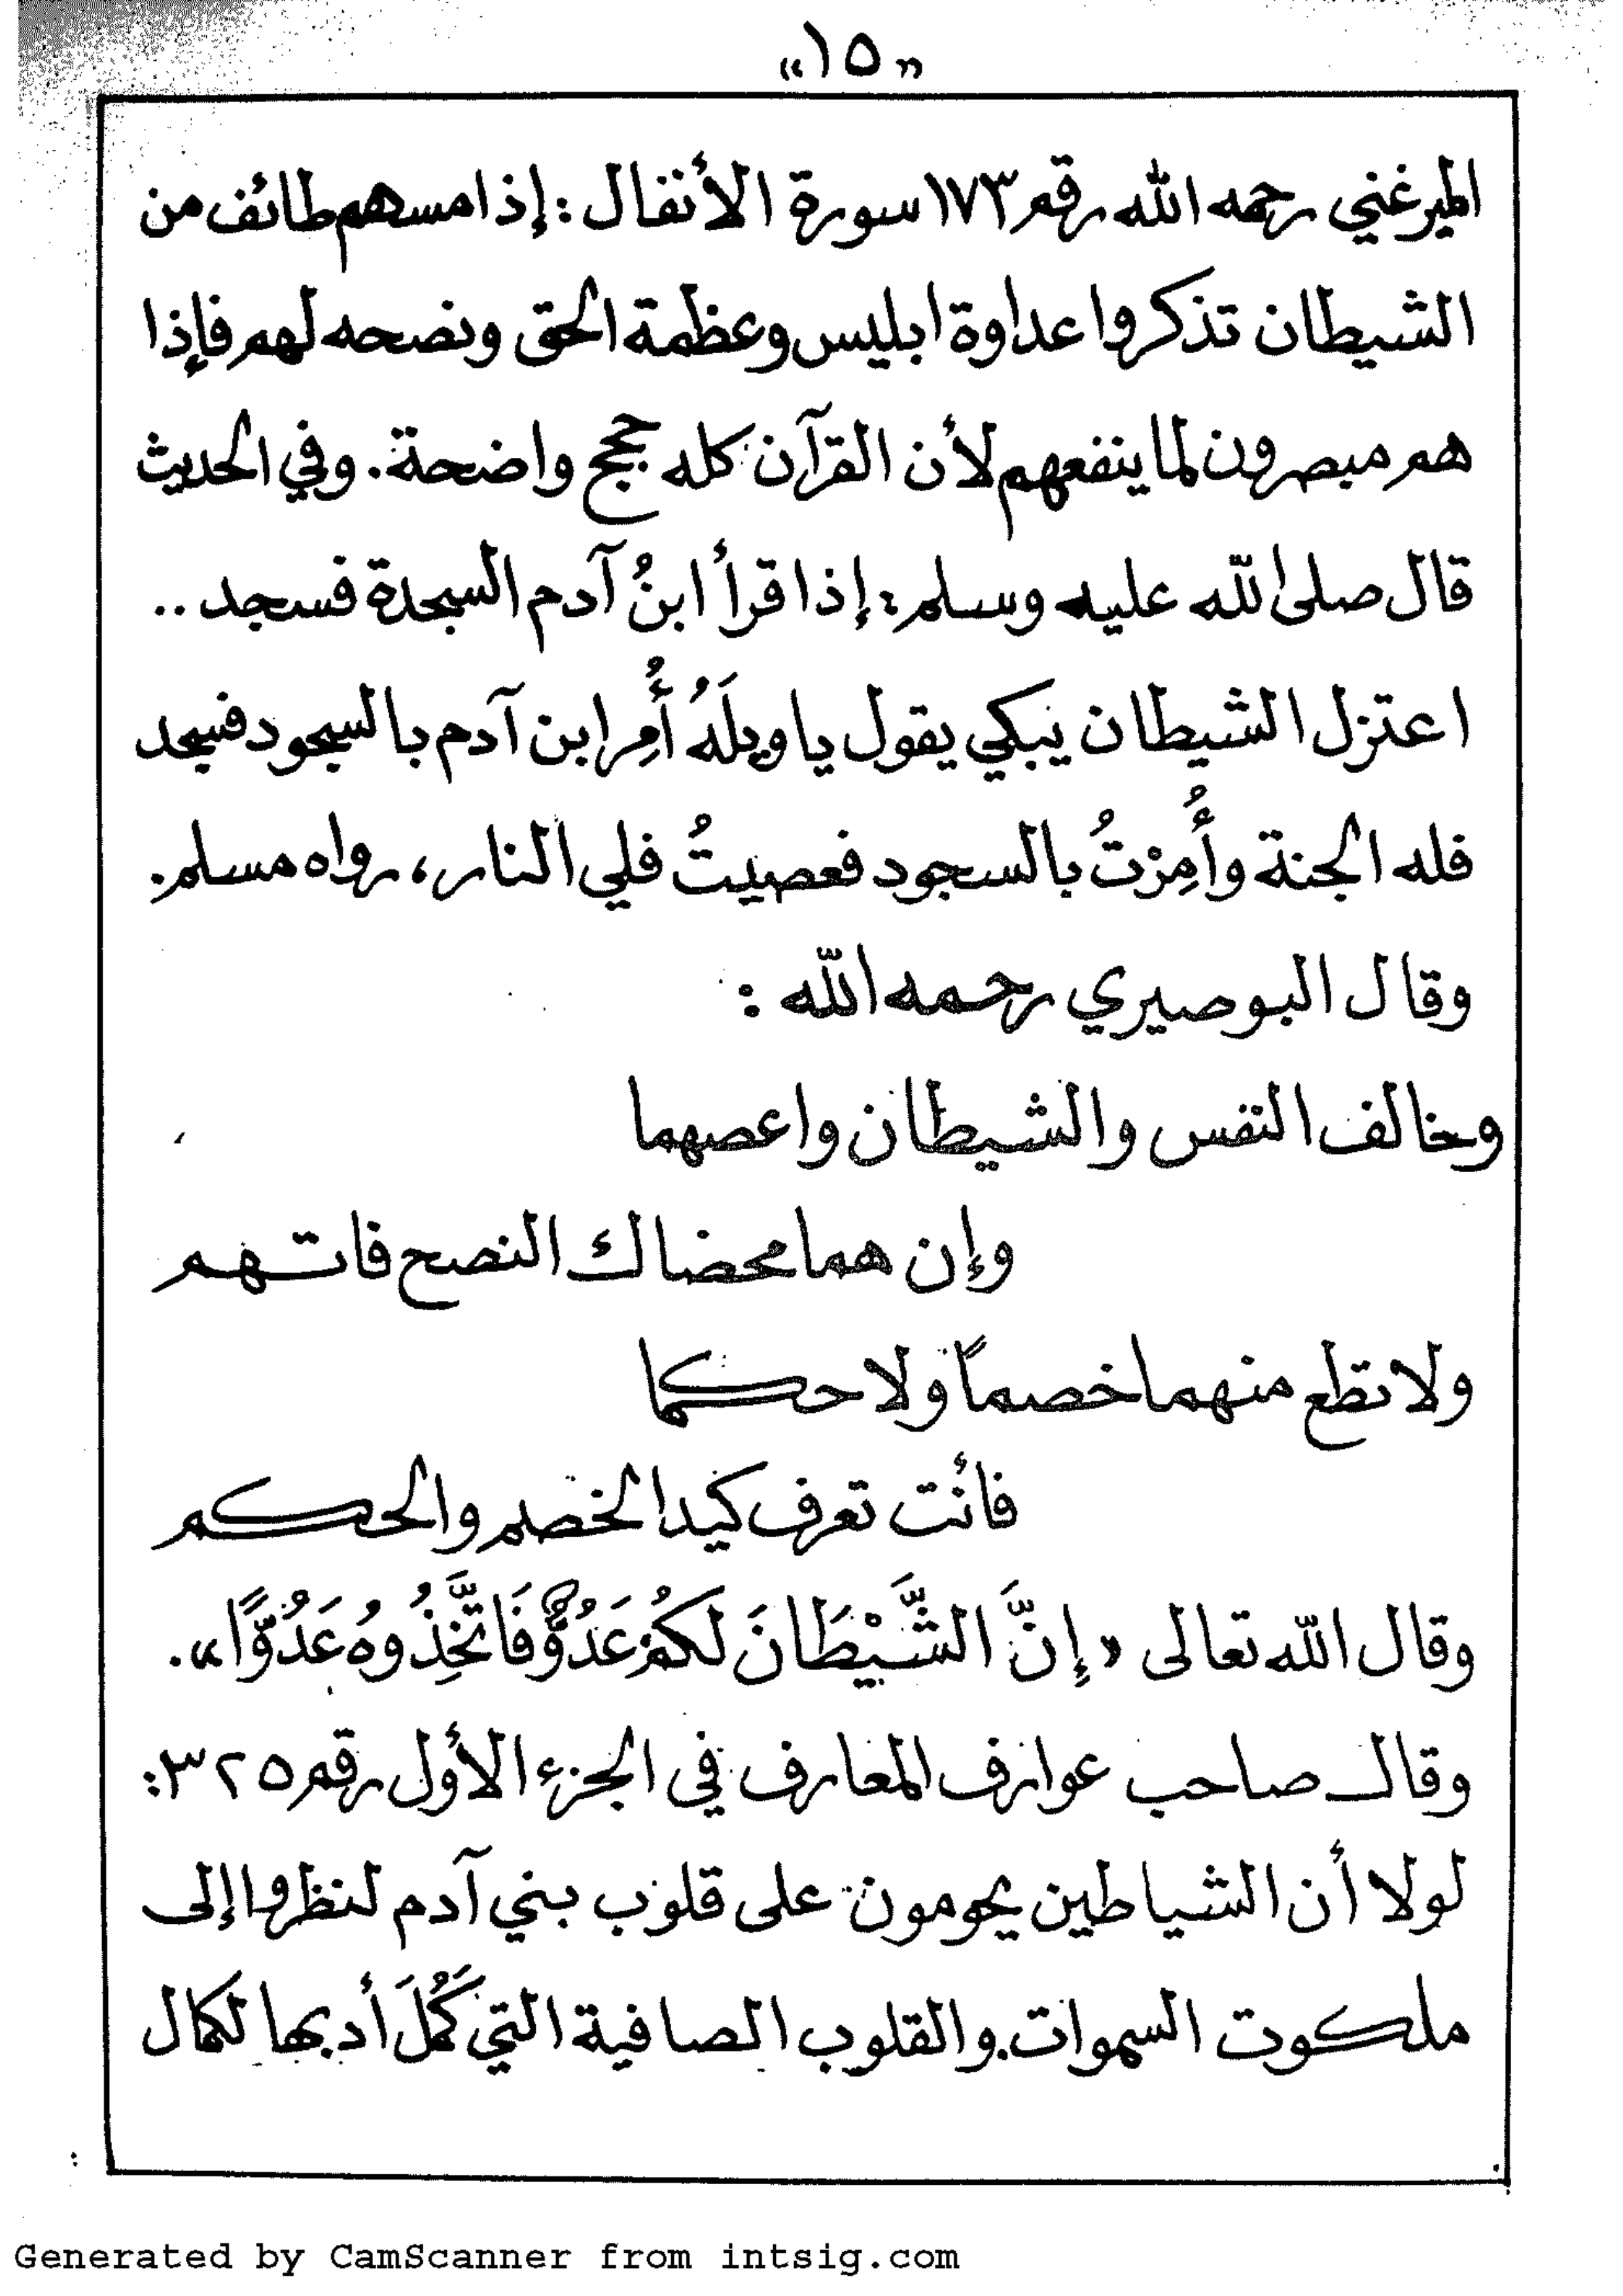 «١٥»
الميرغني رحمه الله رقم ١٧٣ سورة الأنفال : إذا مسهم طائف من
الشيطان تذكروا عداوة ابليس وعظمة الحق ونصحه لهم فإذا
هم مبصرون لما ينفعهم لأن القرآن كله حجج واضحة . وفي الحديث
قال صلى الله عليه وسلم : إذا قرأ ابنُ آدم السجدة فسجد ..
اعتزل الشيطان يبكي يقول يا ويلَهُ أُمِر ابن آدم بالسجود فسجد
فله الجنة وأُمِرْتُ بالسجود فعصيتُ فلي النار ، رواه مسلم .
وقال البوصيري رحمه الله :
وخالف النفس والشيطان واعصهما
وإن هما محضاك النصح فاتهم
ولا تطع منهما خصماً ولا حكما
فأنت تعرف كيد الخصم والحكم
وقال الله تعالى « إِنَّ الشَّيْطَانَ لَكُمْ عَدُوٌّ فَاتَّخِذُوهُ عَدُوًّا » .
وقال صاحب عوارف المعارف في الجزء الأول رقم ٣٢٥ :
لولا أن الشياطين يحومون على قلوب بني آدم لنظروا إلى
ملكوت السموات . والقلوب الصافية التي كَمُلَ أدبها لكمال
Generated by CamScanner from intsig.com